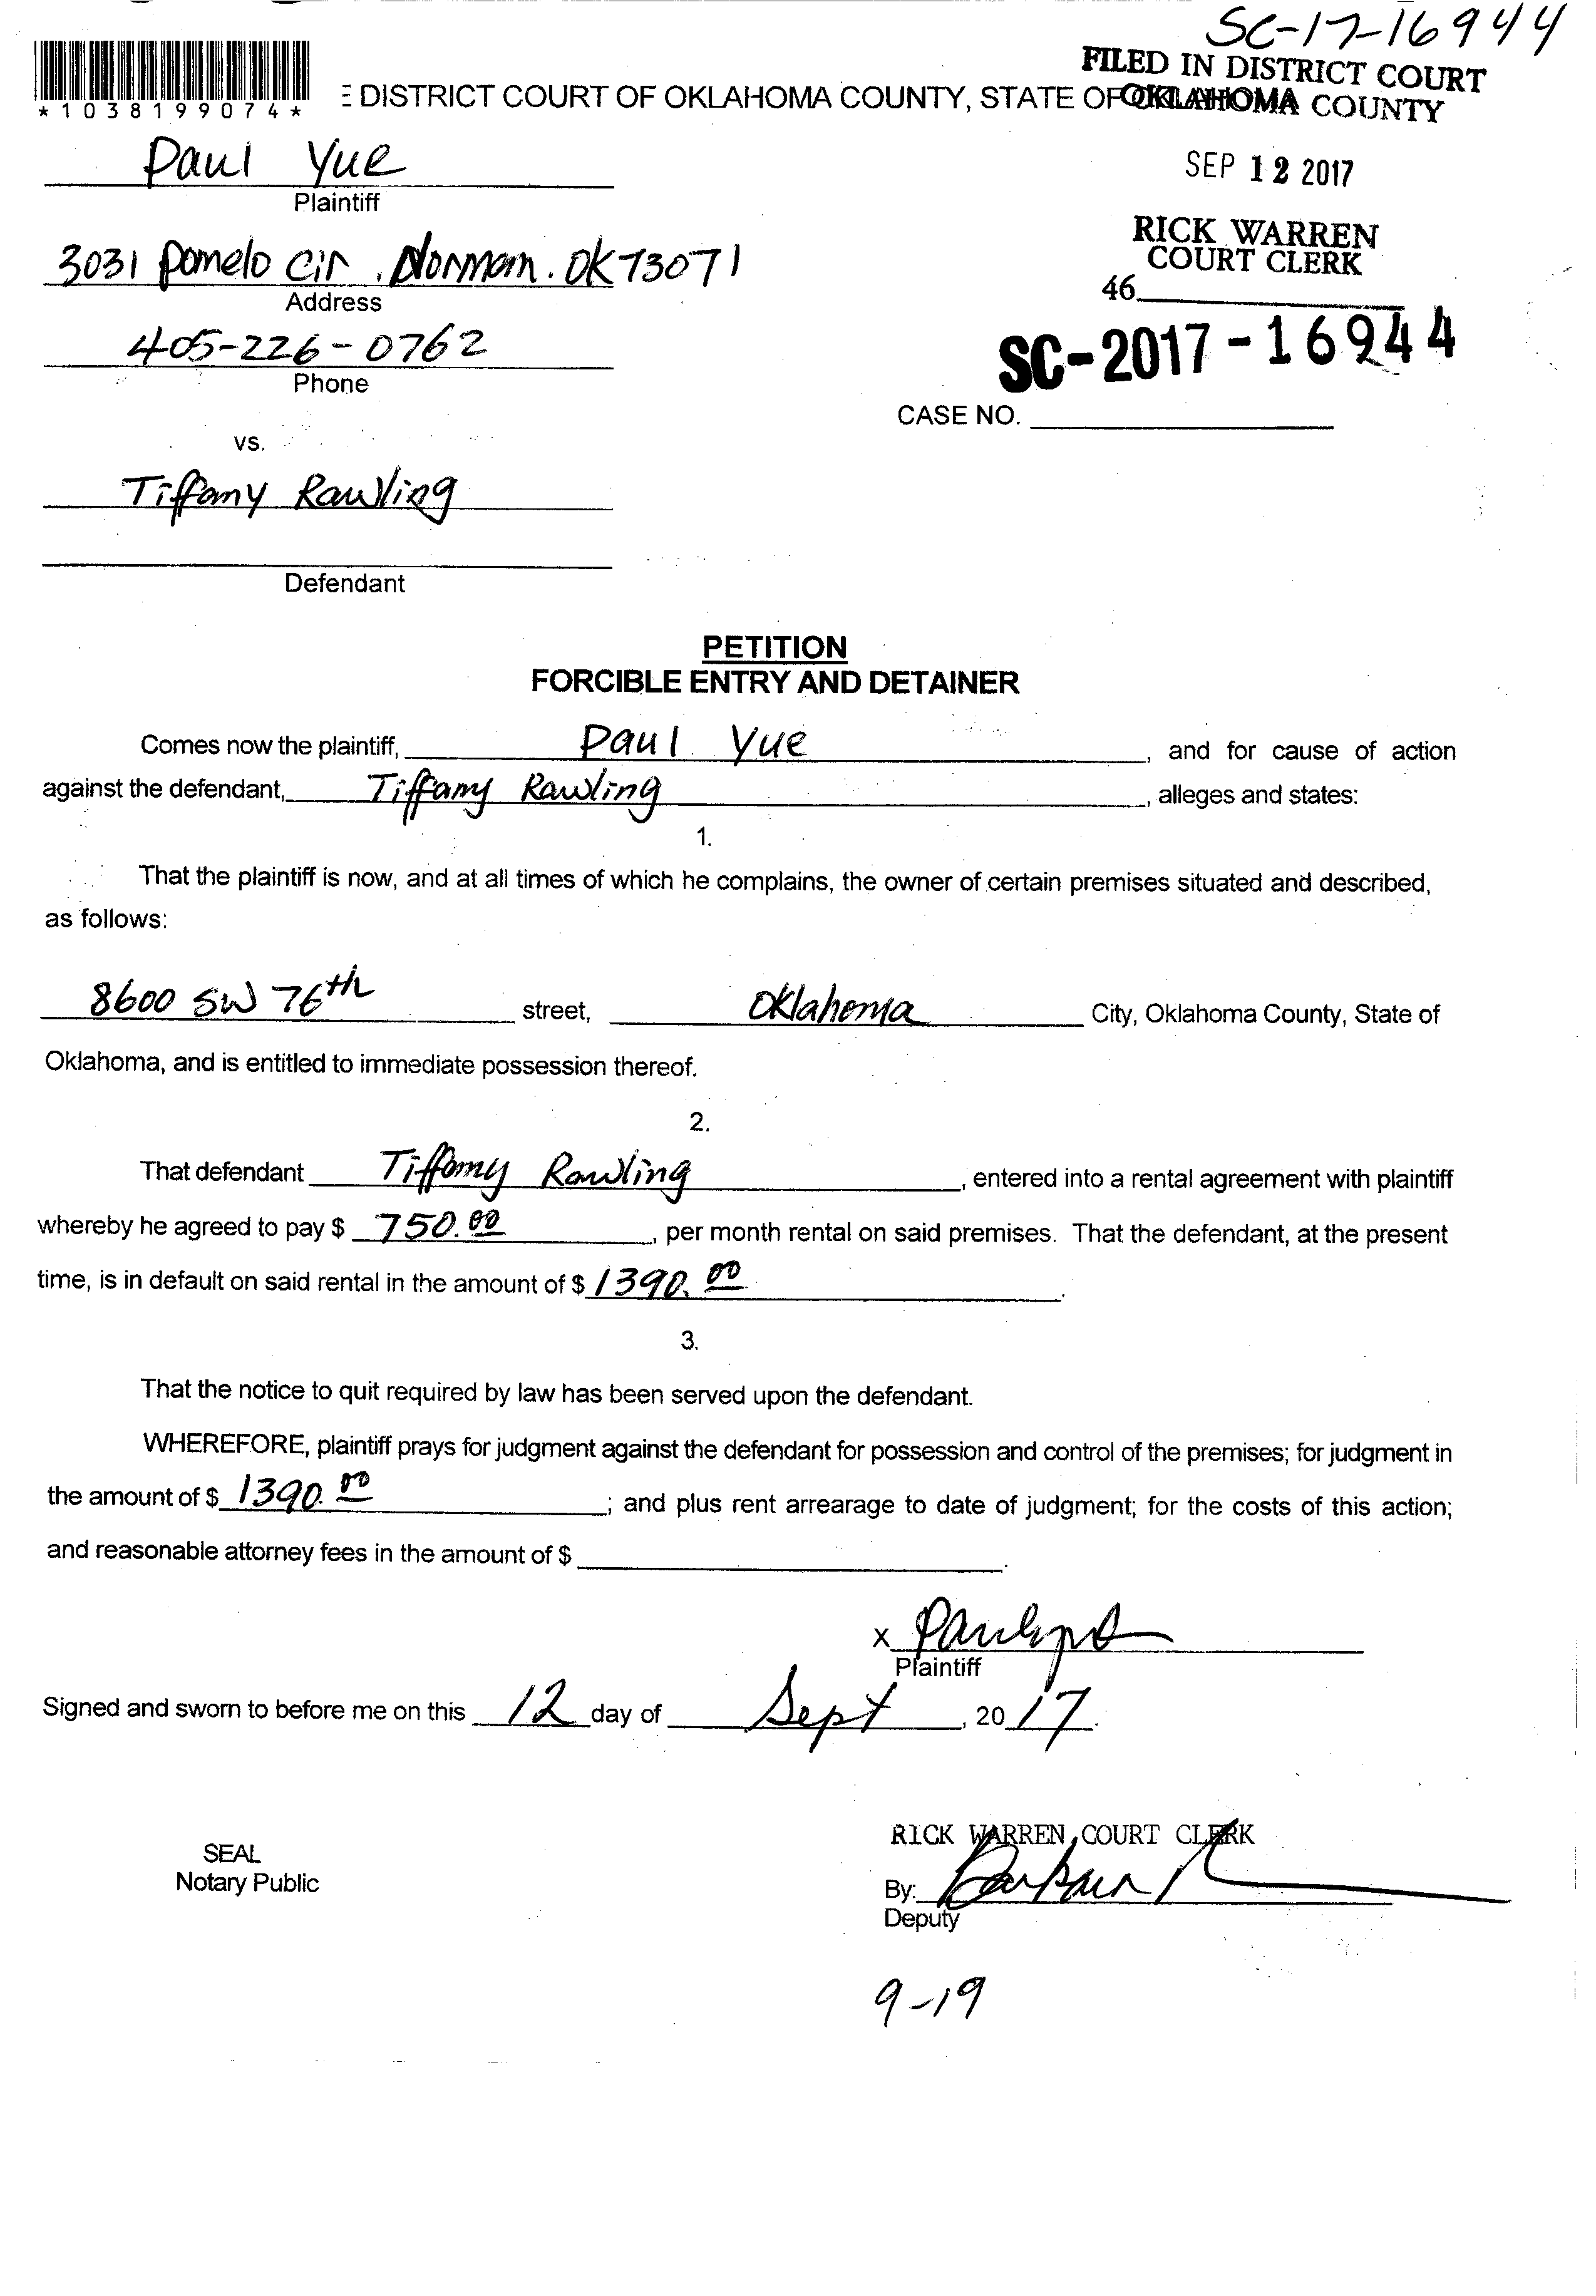 SC-17-16944
FILED IN DISTRICT COURT
OKLAHOMA COUNTY
*1038199074*
E DISTRICT COURT OF OKLAHOMA COUNTY, STATE OF OKLAHOMA
Paul Yue
Plaintiff
SEP 12 2017
3031 Pomelo Cir. Norman. OK 73071
Address
RICK WARREN
COURT CLERK
46
405-226-0762
Phone
SC-2017-16944
CASE NO.
vs.
Tiffany Rawling
Defendant
PETITION
FORCIBLE ENTRY AND DETAINER
Comes now the plaintiff, Paul Yue, and for cause of action
against the defendant, Tiffany Rawling, alleges and states:
1.
That the plaintiff is now, and at all times of which he complains, the owner of certain premises situated and described,
as follows:
8600 SW 76th street, Oklahoma City, Oklahoma County, State of
Oklahoma, and is entitled to immediate possession thereof.
2.
That defendant Tiffany Rawling, entered into a rental agreement with plaintiff
whereby he agreed to pay $ 750.00, per month rental on said premises. That the defendant, at the present
time, is in default on said rental in the amount of $ 1390.00.
3.
That the notice to quit required by law has been served upon the defendant.
WHEREFORE, plaintiff prays for judgment against the defendant for possession and control of the premises; for judgment in
the amount of $ 1390.00; and plus rent arrearage to date of judgment; for the costs of this action;
and reasonable attorney fees in the amount of $ .
x
Plaintiff
Signed and sworn to before me on this 12 day of Sept, 2017.
RICK WARREN, COURT CLERK
SEAL
Notary Public
By: Barbara
Deputy
9-19